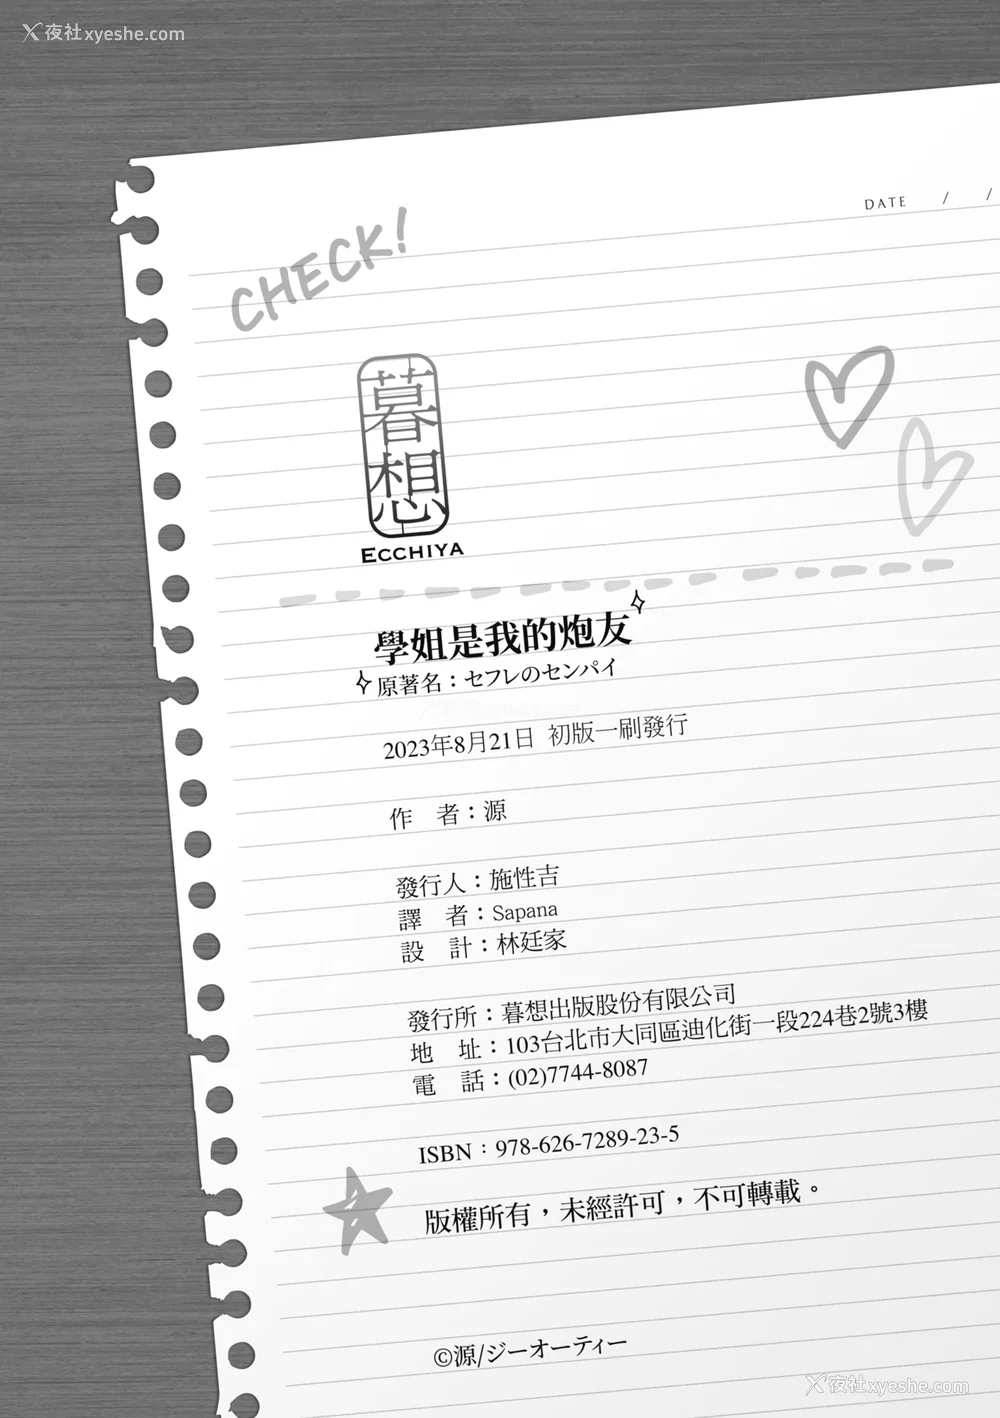 夜社xyeshe.com
DATE / /
CHECK!
暮想
ECCHIYA
學姐是我的炮友
原著名：セフレのセンパイ
2023年8月21日 初版一刷發行
作 者：源
發行人：施性吉
譯 者：Sapana
設 計：林廷家
發行所：暮想出版股份有限公司
地 址：103台北市大同區迪化街一段224巷2號3樓
電 話：(02)7744-8087
ISBN：978-626-7289-23-5
版權所有，未經許可，不可轉載。
©源/ジーオーティー
夜社xyeshe.com